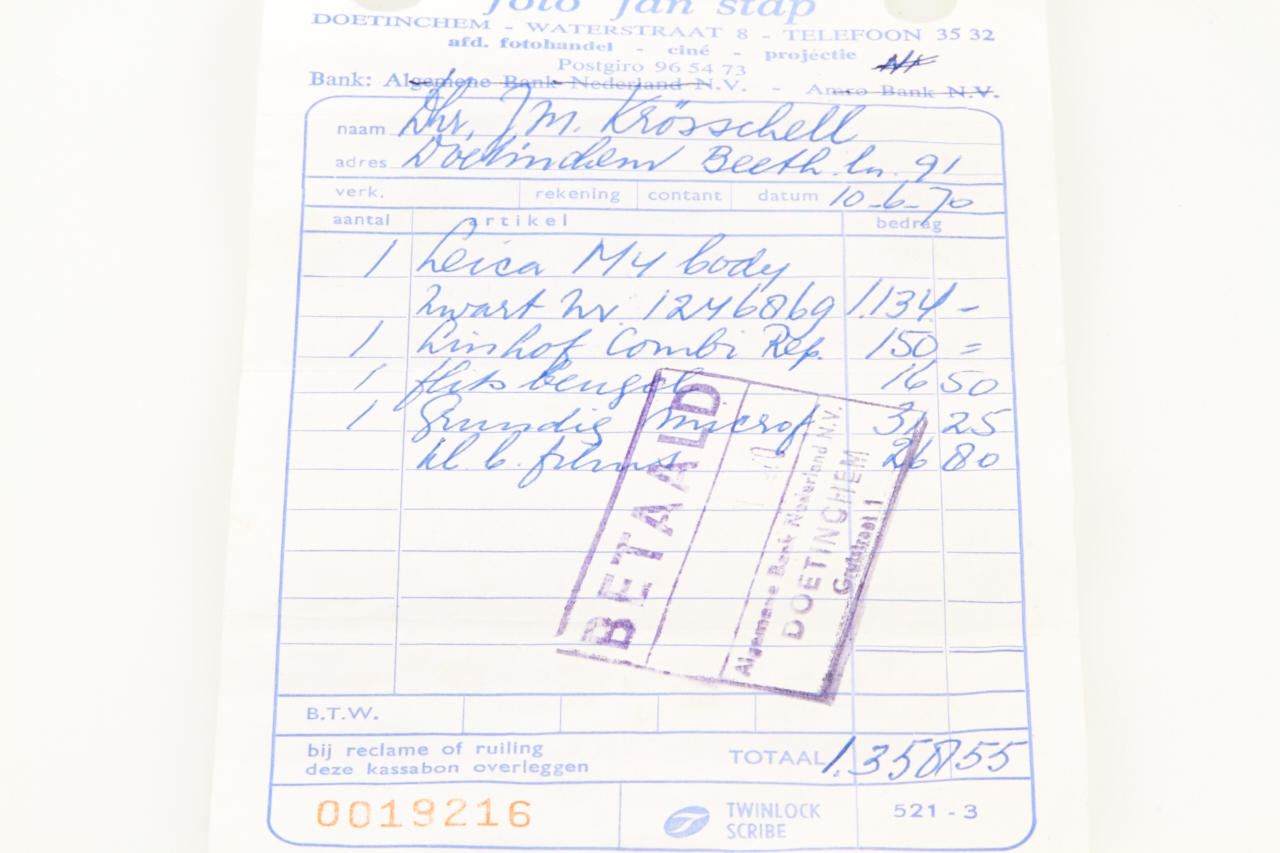 foto jan stap
DOETINCHEM - WATERSTRAAT 8 - TELEFOON 35 32
afd. fotohandel - ciné - projectie
Postgiro 96 54 73
Bank: Algemene Bank Nederland N.V. - Amro Bank N.V.
naam Dhr. J.M. Krösschell
adres Doetinchem Beeth. ln. 91
verk. rekening contant datum 10-6-70
aantal artikel bedrag
1 Leica M4 body
zwart nr. 1246869 1.134.-
1 Linhof Combi Rep. 150 =
1 flits beugel 16 50
1 Grundig microf 31 25
kl. b. films 26 80
BETAALD
Algemene Bank Nederland N.V.
DOETINCHEM
B.T.W.
bij reclame of ruiling
deze kassabon overleggen
TOTAAL 1.358 55
0019216
TWINLOCK
SCRIBE
521 - 3